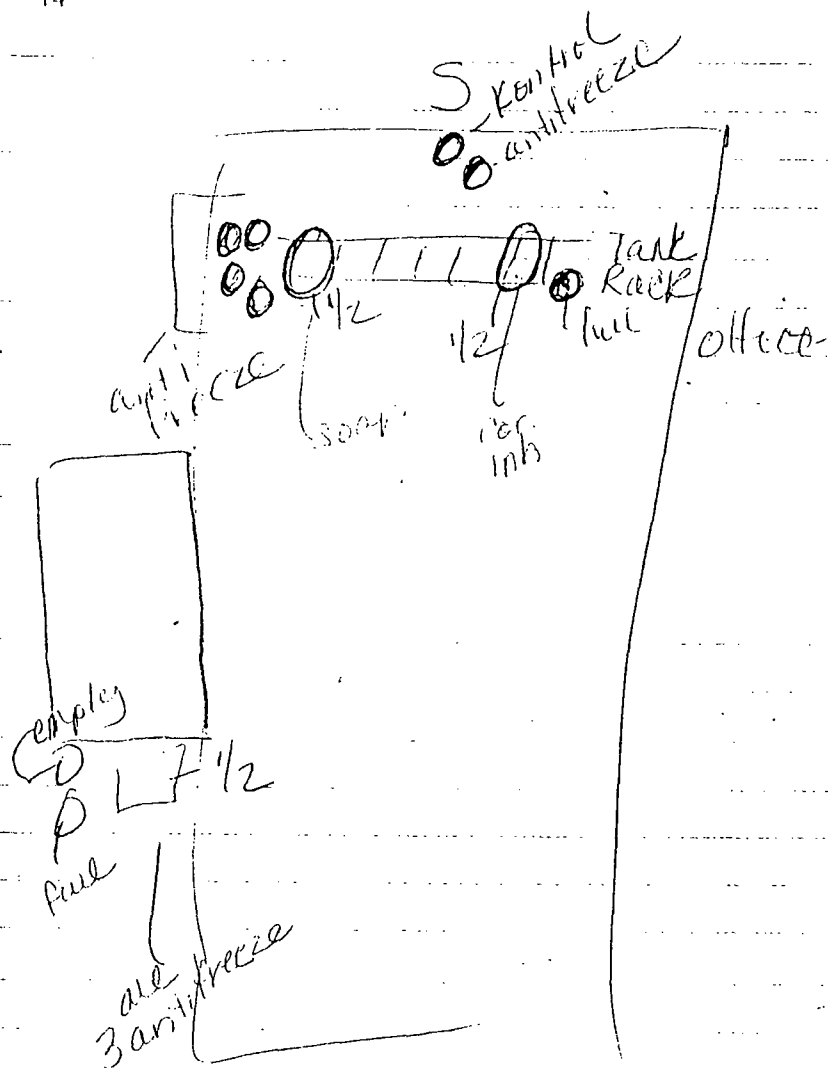 S
Kontrol
antifreeze
Tank
Rack
1/2
1/2
full
office
anti
freeze
soap
empty
1/2
full
all
3 antifreeze